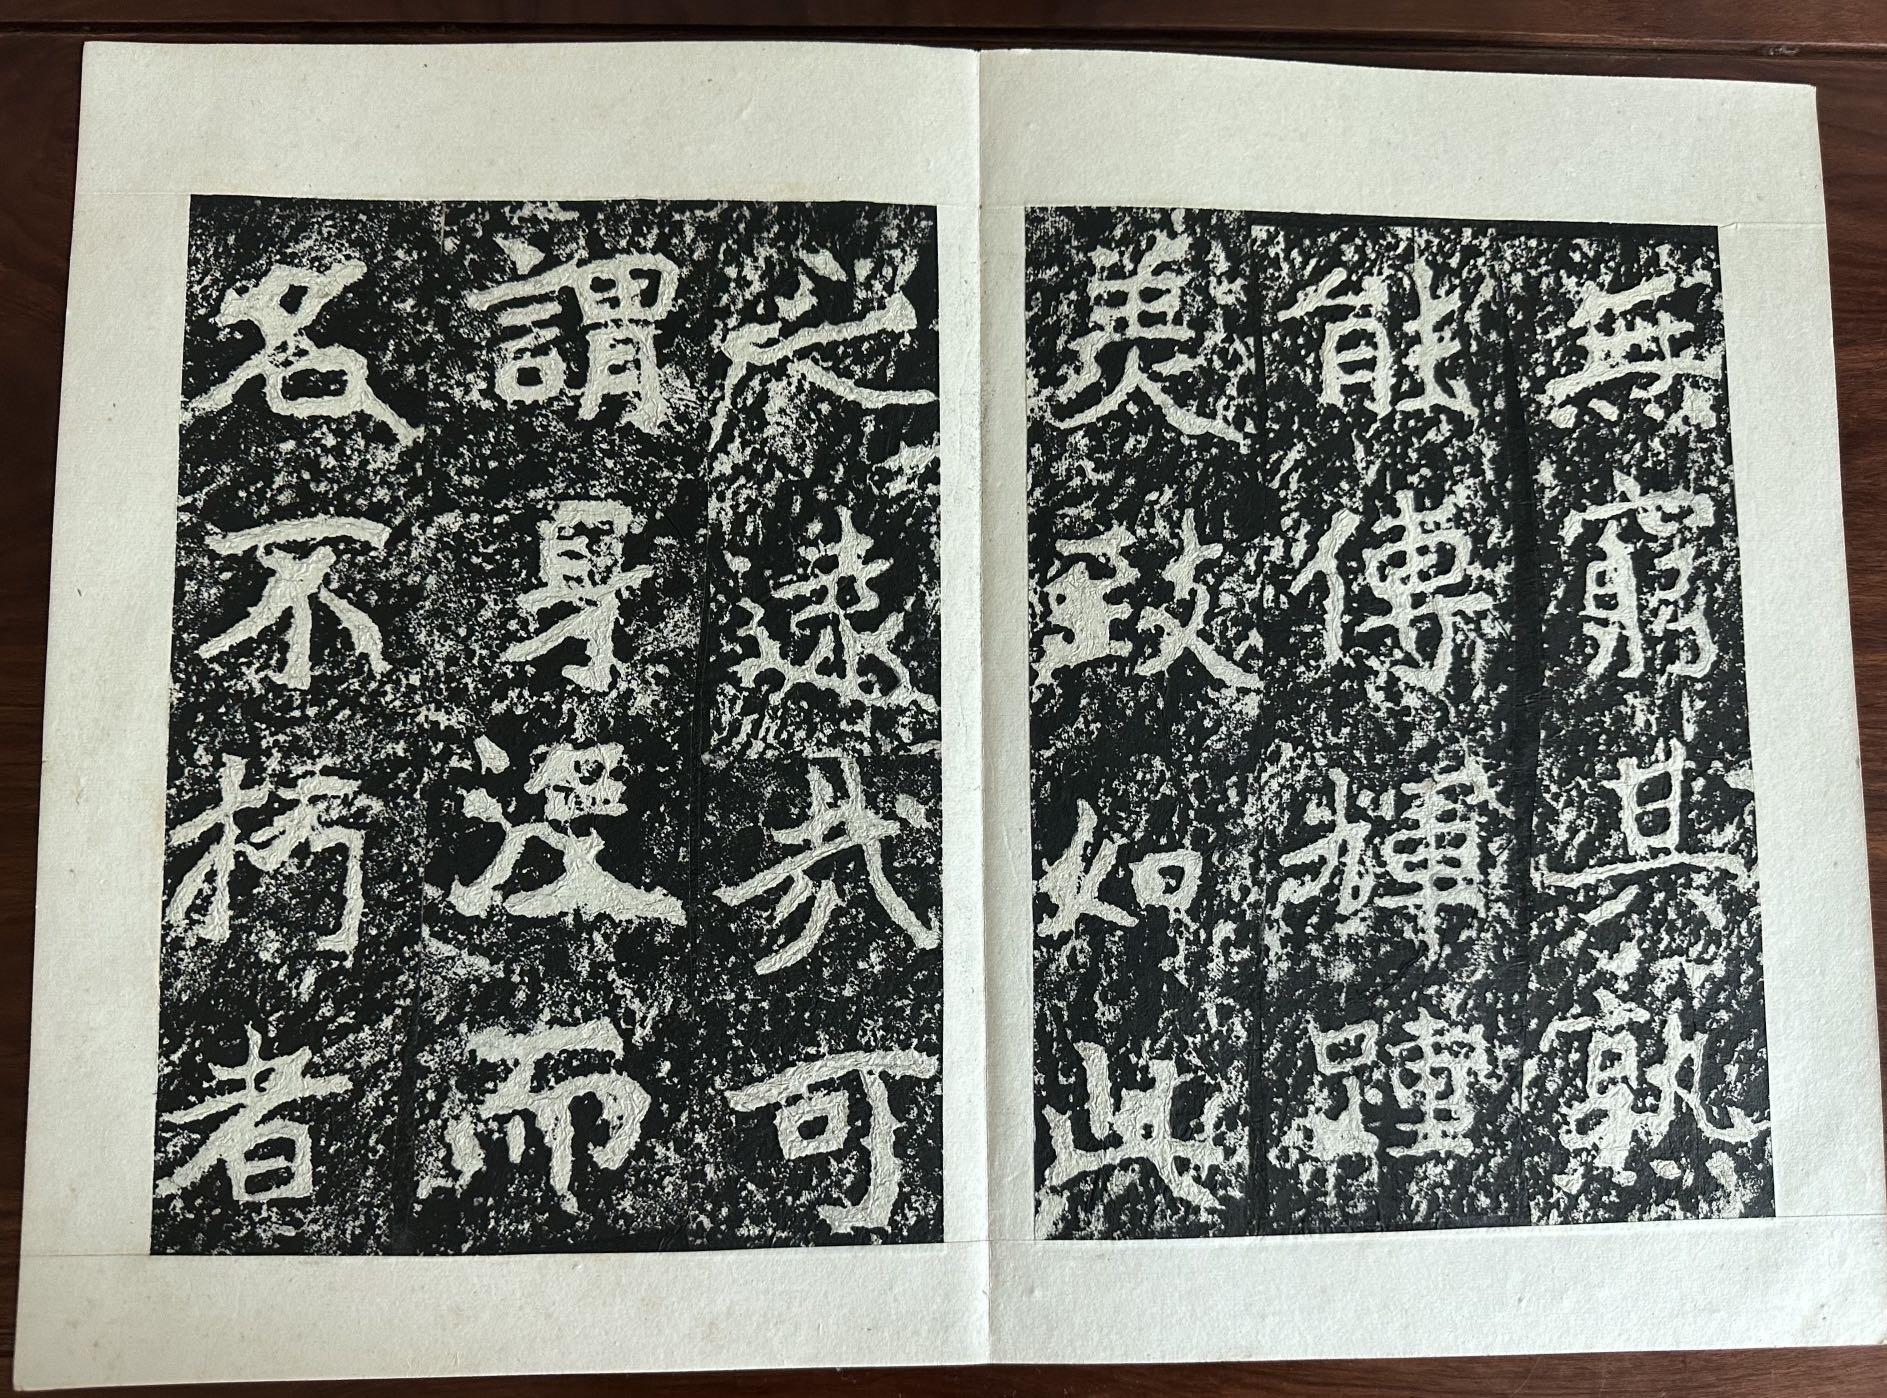 無窮其孰
能傳輝踵
美致如此
之遠哉可
謂身沒而
名不朽者